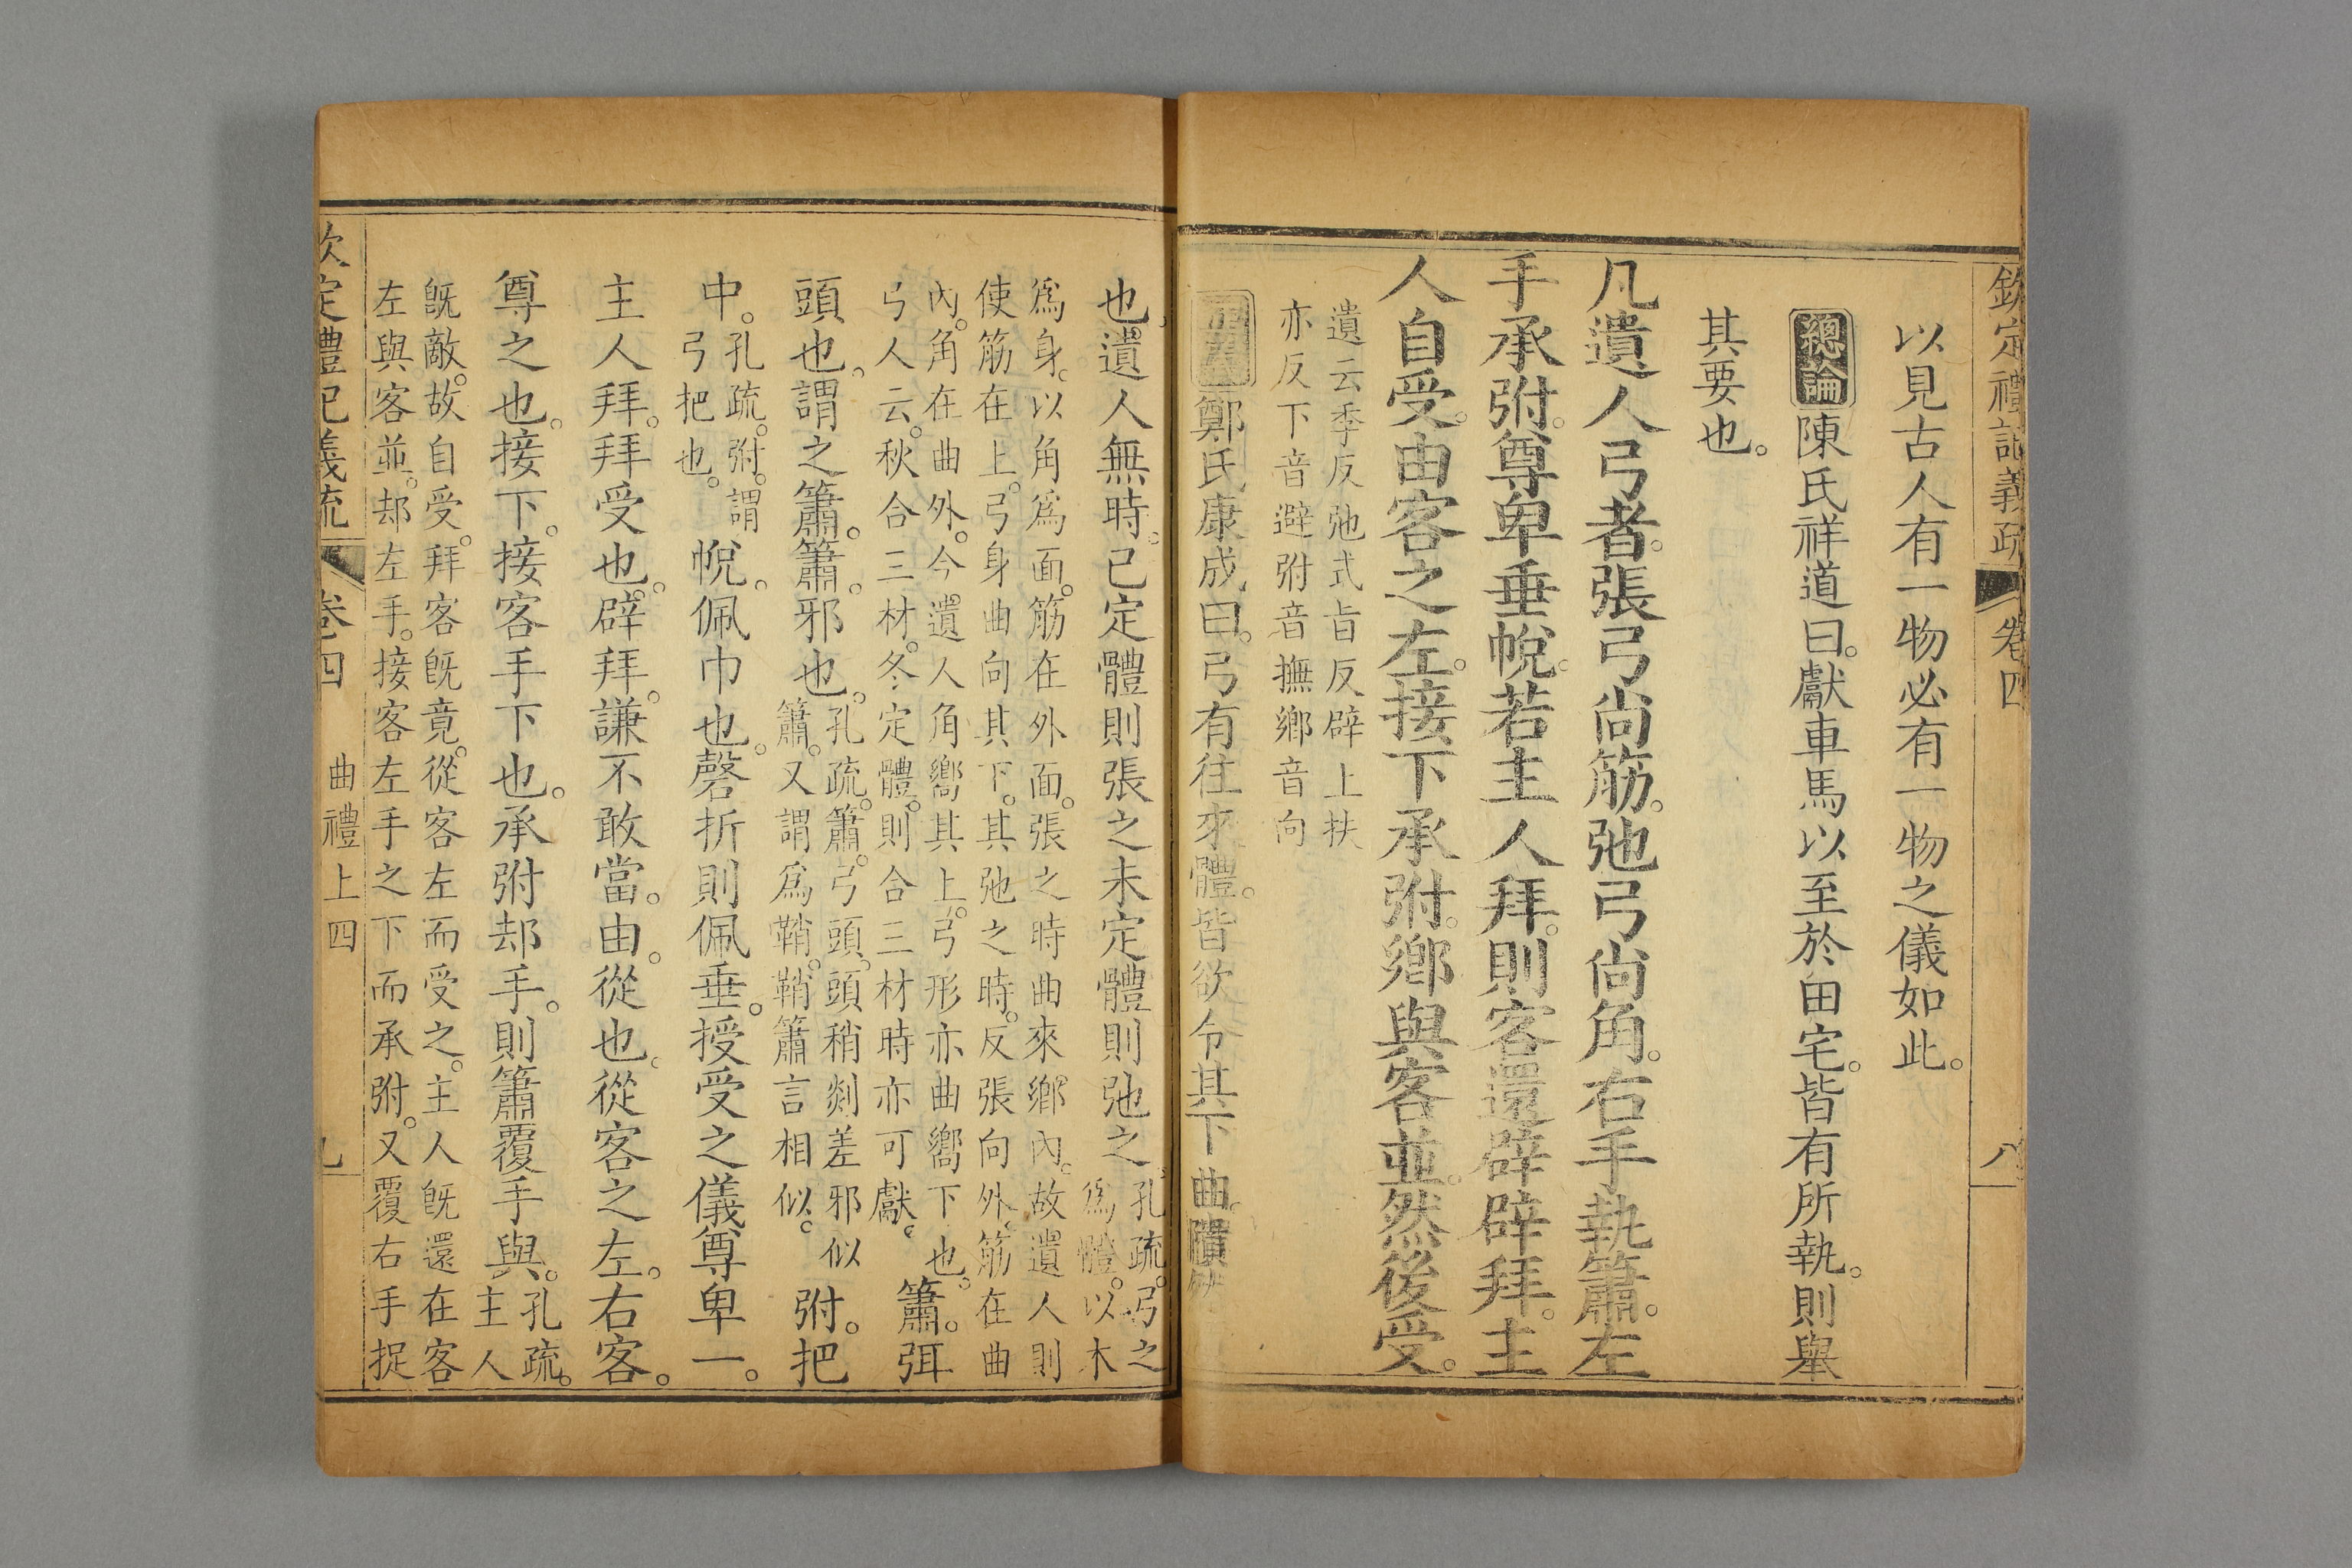 欽定禮記義疏 卷四 八
以見古人有一物必有一物之儀如此。
總論陳氏祥道曰。獻車馬以至於田宅。皆有所執。則舉
其要也。
凡遺人弓者。張弓尚筋。弛弓尚角。右手執簫。左
手承弣。尊卑垂帨。若主人拜。則客還辟辟拜。主
人自受。由客之左。接下承弣。鄉與客並。然後受。
遺云季反弛式旨反辟上扶
亦反下音避弣音撫鄉音向
鄭氏康成曰。弓有往來體。皆欲令其下曲。隤然
也。遺人無時。已定體則張之未定體則弛之。孔疏。弓之
爲體。以木
爲身。以角爲面。筋在外面。張之時曲來鄉內。故遺人則
使筋在上。弓身曲向其下。其弛之時。反張向外。筋在曲
內。角在曲外。今遺人角嚮其上。弓形亦曲嚮下也。
弓人云。秋合三材。冬定體。則合三材時亦可獻。簫。弭
頭也。謂之簫。簫。邪也。孔疏。簫。弓頭。頭稍剡差邪似
簫。又謂爲鞘。鞘簫言相似。弣。把
中。孔疏。弣。謂
弓把也。帨。佩巾也。磬折則佩垂。授受之儀尊卑一。
主人拜。拜受也。辟拜。謙不敢當。由。從也。從客之左。右客。
尊之也。接下。接客手下也。承弣却手。則簫覆手與。孔疏。
主人
旣敵。故自受。拜客旣竟。從客左而受之。主人旣還在客
左與客並。却左手。接客左手之下而承弣。又覆右手捉
欽定禮記義疏 卷四 曲禮上四 九